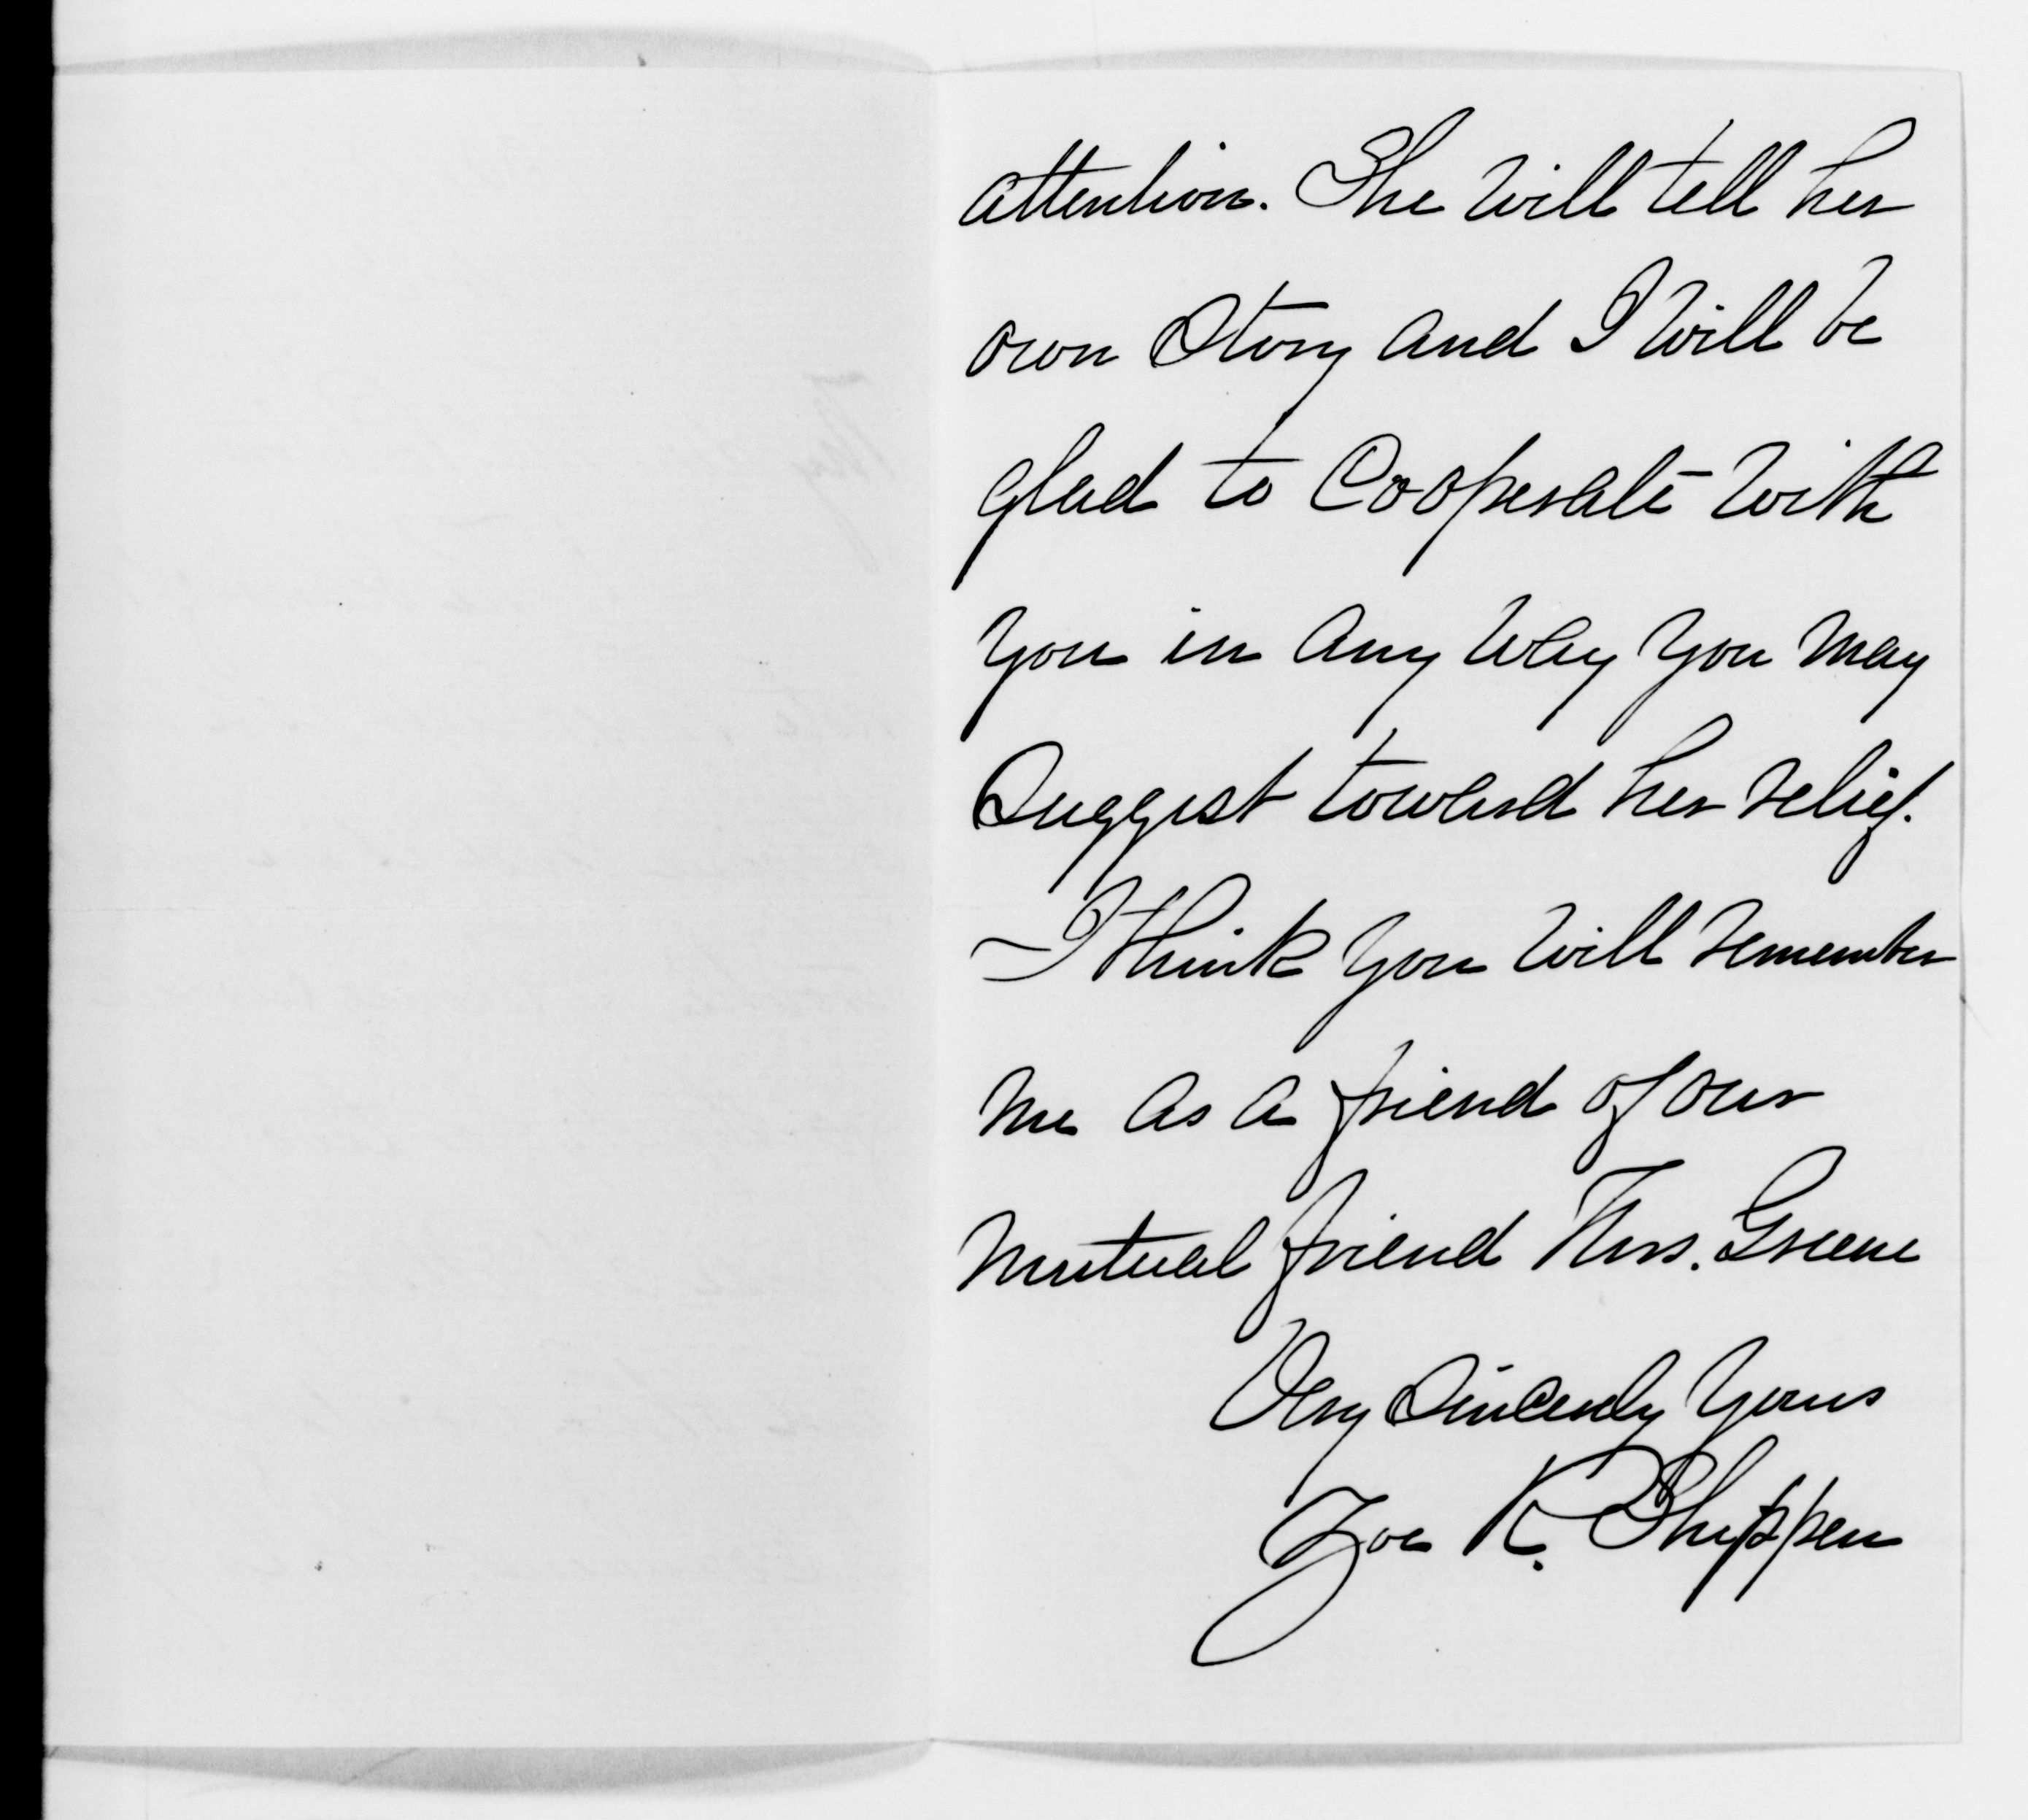 attention. She will tell her
own story and I will be
glad to Cooperate with
you in any way you may
suggest toward her relief.
— I think you will remember
me as a friend of our
mutual friend Mrs. Greene
Very sincerely yours
Zoe K. Shippen